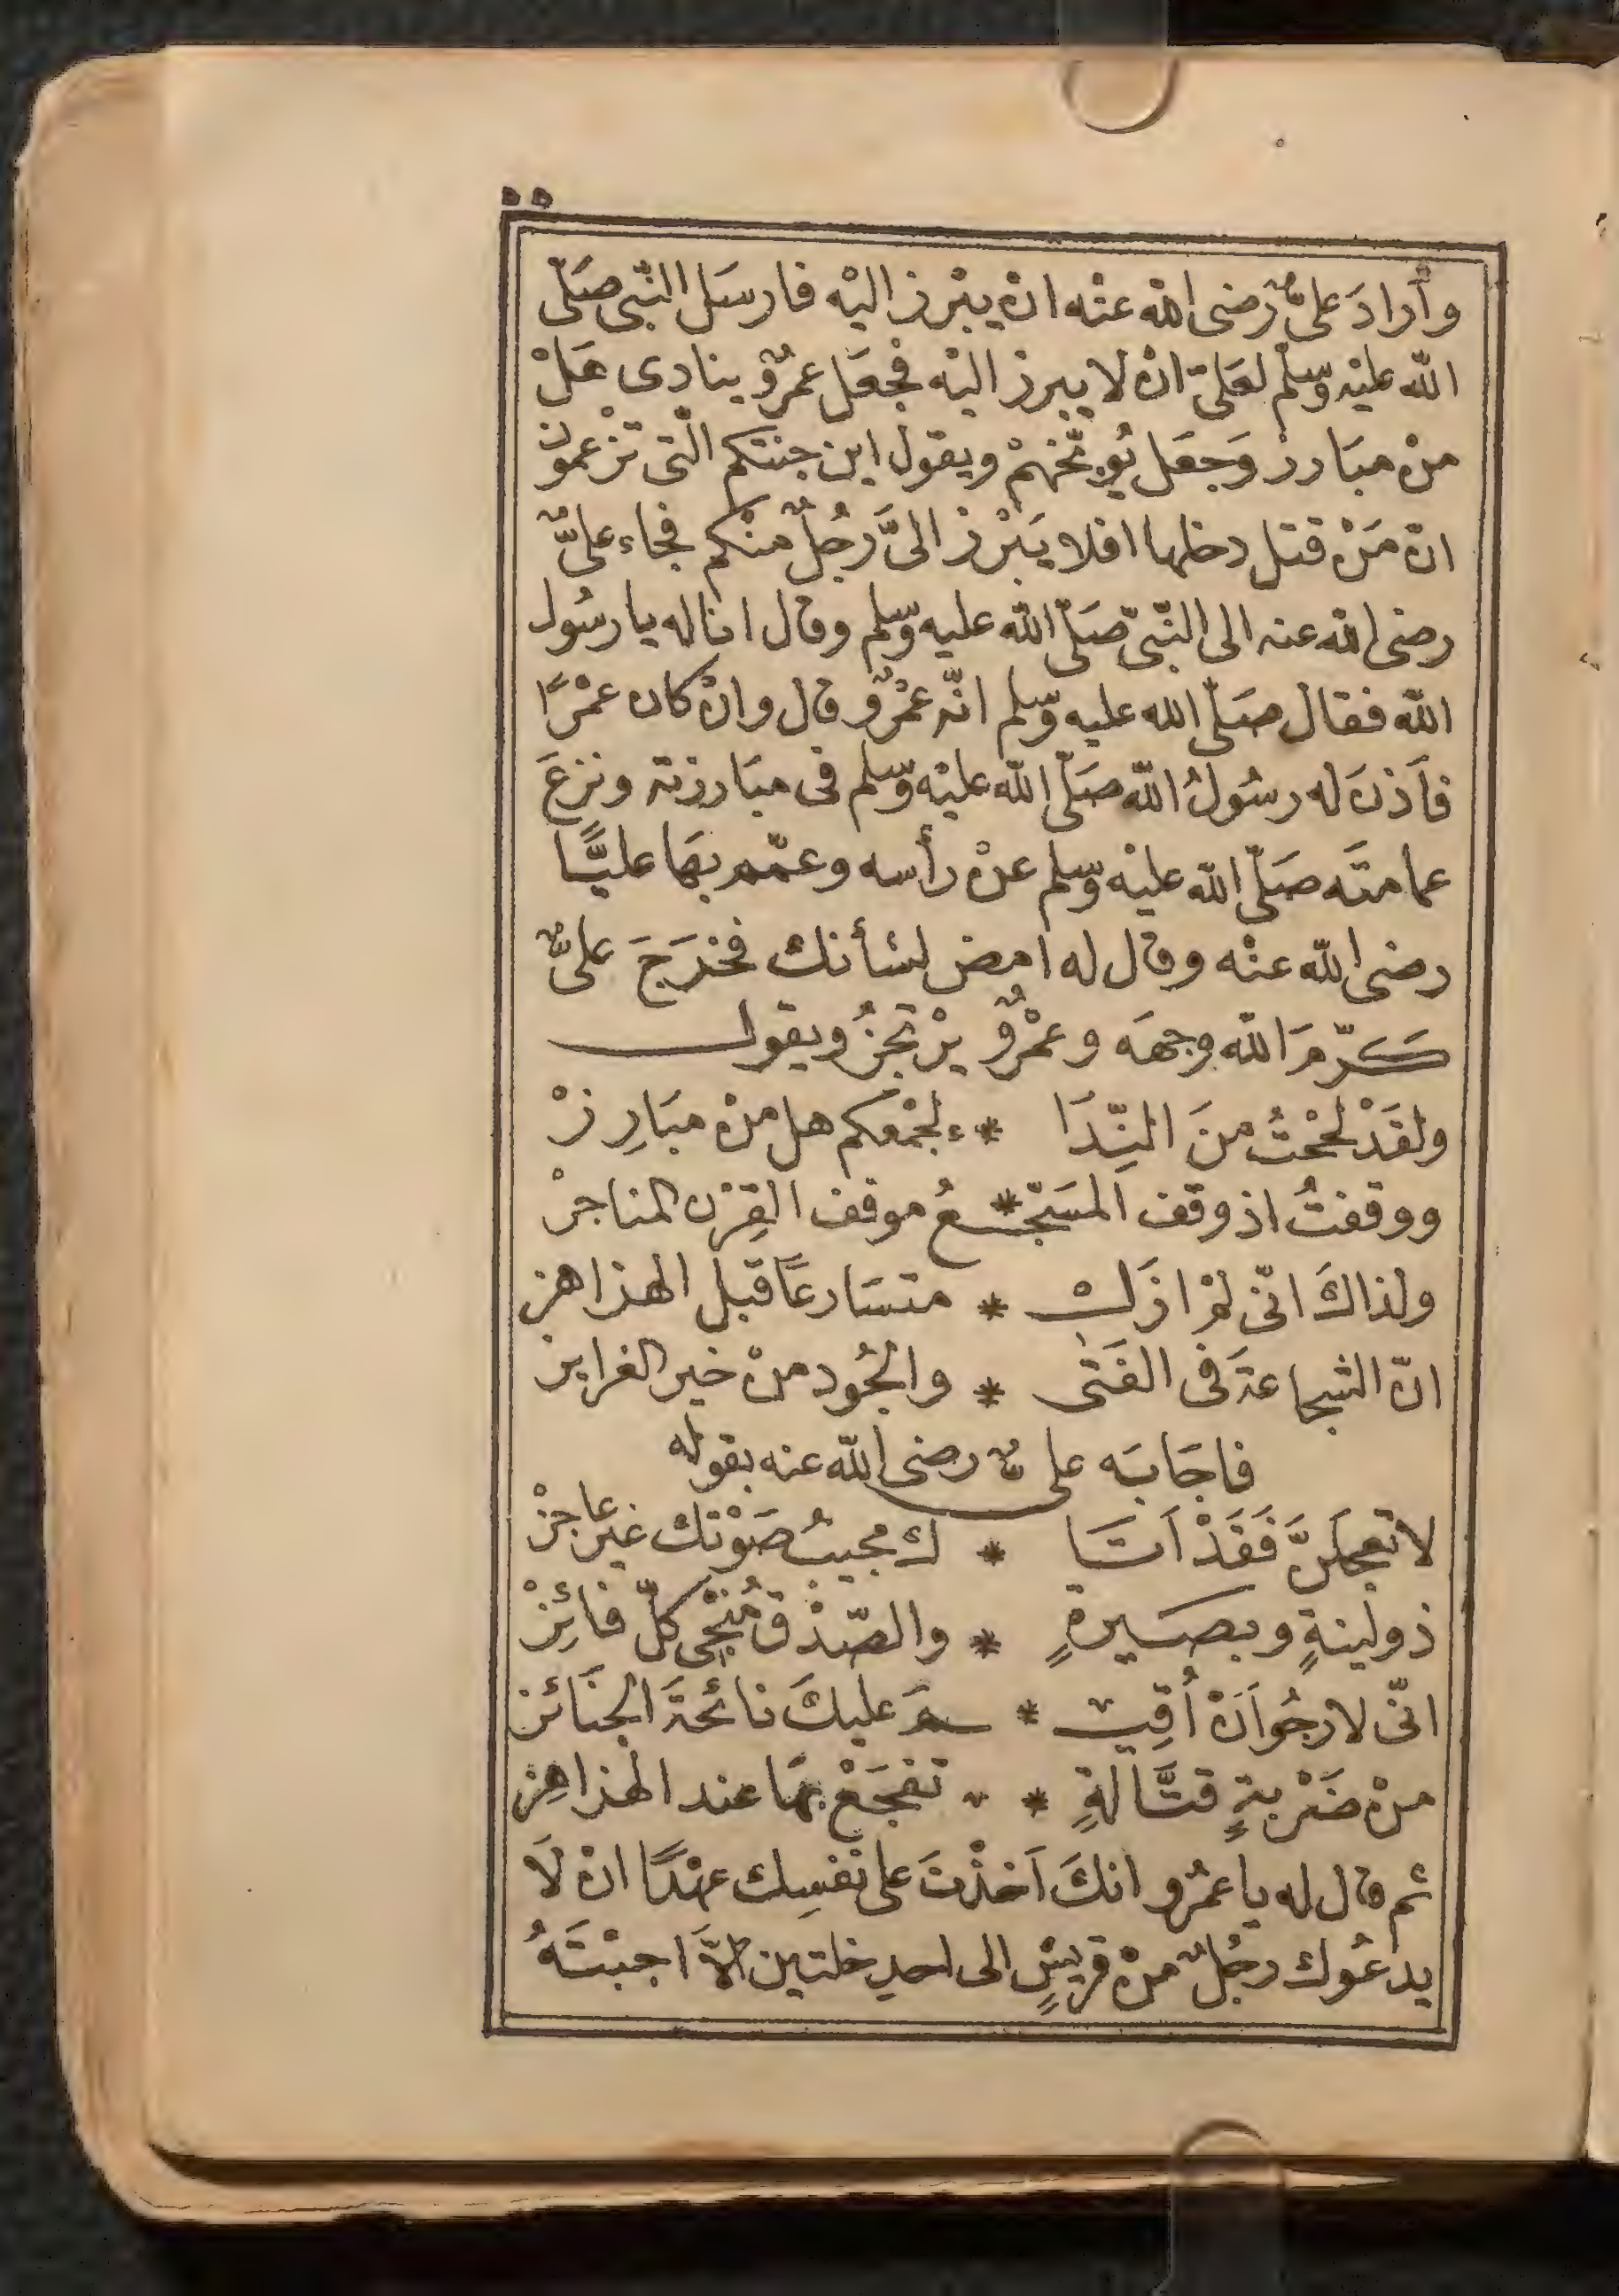 ٥٥
وأراد علىٌّ رضى الله عنْه انْ يبْرز اليْه فارسَل النّبى صَلّى
الله عليْه وسّلم لعَلىّ انْ لا يبرز اليْه فجعَل عمرٌو ينادى هَلْ
منْ مبَارز وَجعَل يُوبّخهمْ ويقول اين جنتكم الّتى تزْعمون
انّ مَنْ قتل دخلها افلا يَبْرز الىَّ رَجُلٌ منْكم فجاء علىٌّ
رضى الله عنه الى النّبىّ صَلّى الله عليه وسّلم وقال اناله يا رسُول
الله فقال صَلّى الله عليه وسّلم انّه عمْرٌو قال وانْ كان عمْرًا
فأَذنَ له رسُولُ الله صَلّى الله عليْه وسّلم فى مبَارزته ونزعَ
عمامتَه صَلّى الله عليْه وسّلم عنْ رأسه وعمّمه بهَا عليًّا
رضى الله عنْه وقال له امض لشأنك فخرَجَ علىٌّ
كَرّمَ الله وجهَه وعمْرٌو يرْتجزُ ويقول
ولقَدْ بُحْتُ منَ النِّدَا * ء لجمْعكم هل منْ مبَارِزْ
ووقفتُ اذ وقف المسَجّع * ـعُ موقف القِرْن المناجزْ
ولذاكَ انّى لمْ ازَلْ * متسَارعًا قبل الهزاهز
انّ الشجاعةَ فى الفَتَى * والجُود منْ خير الغرايز
فاجَابَه علىٌّ رضى الله عنه بقوله
لا تعجلَنَّ فَقَدْ اَتَا * ك مجيبُ صَوْتك غيَر عاجزْ
ذو لينةٍ وبصَيرةٍ * والصّدْق مُنْجى كلّ فائِزْ
انّى لارجُو اَنْ اُقِيـ * ـمَ عليكَ نائحةَ الجنَائز
منْ ضَرْبةٍ قتَّالةٍ * تفجَعْ بهَا عند الهزاهِز
ثم قال له يا عمْرُو انكَ اَخذْتَ على نَفسِك عهْدًا انْ لَا
يدعُوك رجُلٌ منْ قريْشٍ الى احدى خلتين الّا اجبْتَهُ